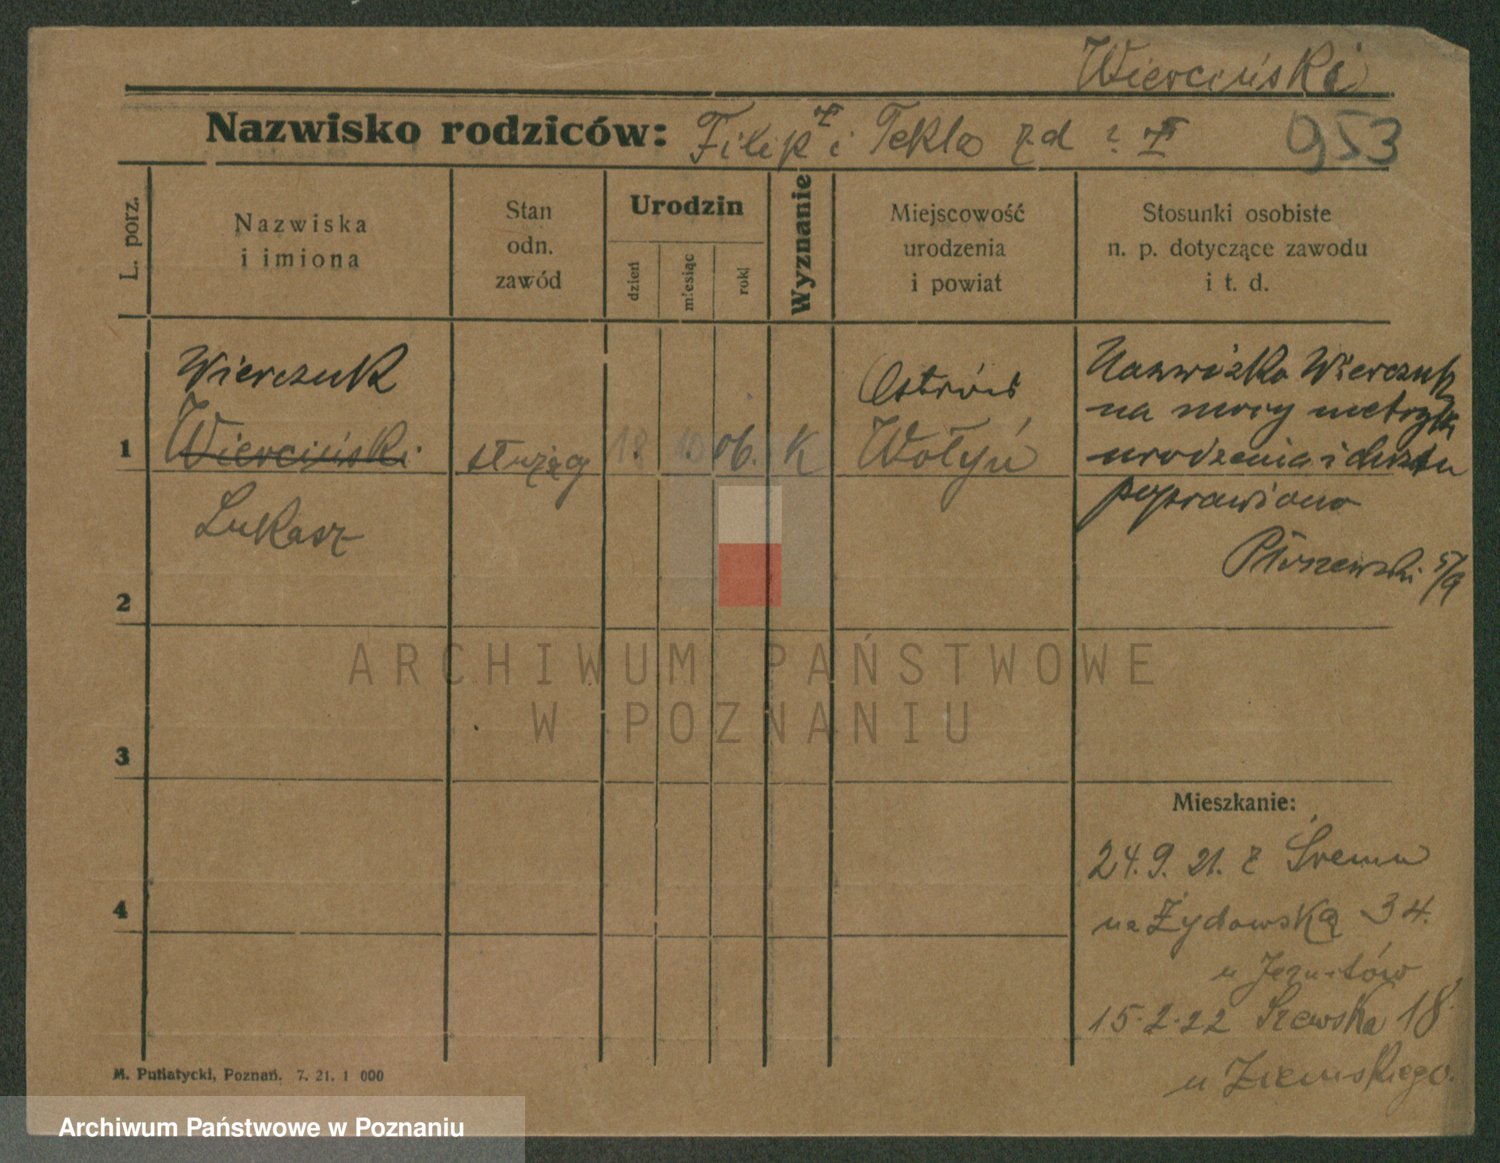 Wierciński
Nazwisko rodziców: Filip i Tekla zd ?
953
L. porz.
Nazwiska
i imiona
Stan
odn.
zawód
Urodzin
dzień
miesiąc
rok
Wyznanie
Miejscowość
urodzenia
i powiat
Stosunki osobiste
n. p. dotyczące zawodu
i t. d.
1
Wierczuk
Wierciński
Łukasz
służący
18. 10 06. K
Ostróg
Wołyń
Nazwisko Wierczuk
na mocy metryki
urodzenia i chrztu
poprawiono
5/9
2
3
4
Mieszkanie:
24. 9. 21. z Śremu
na Żydowską 34.
u Jezuitów
15-2-22 Szewska 18
u Ziemskiego.
M. Putiatycki, Poznań. 7. 21. 1 000
ARCHIWUM PAŃSTWOWE
W POZNANIU
Archiwum Państwowe w Poznaniu